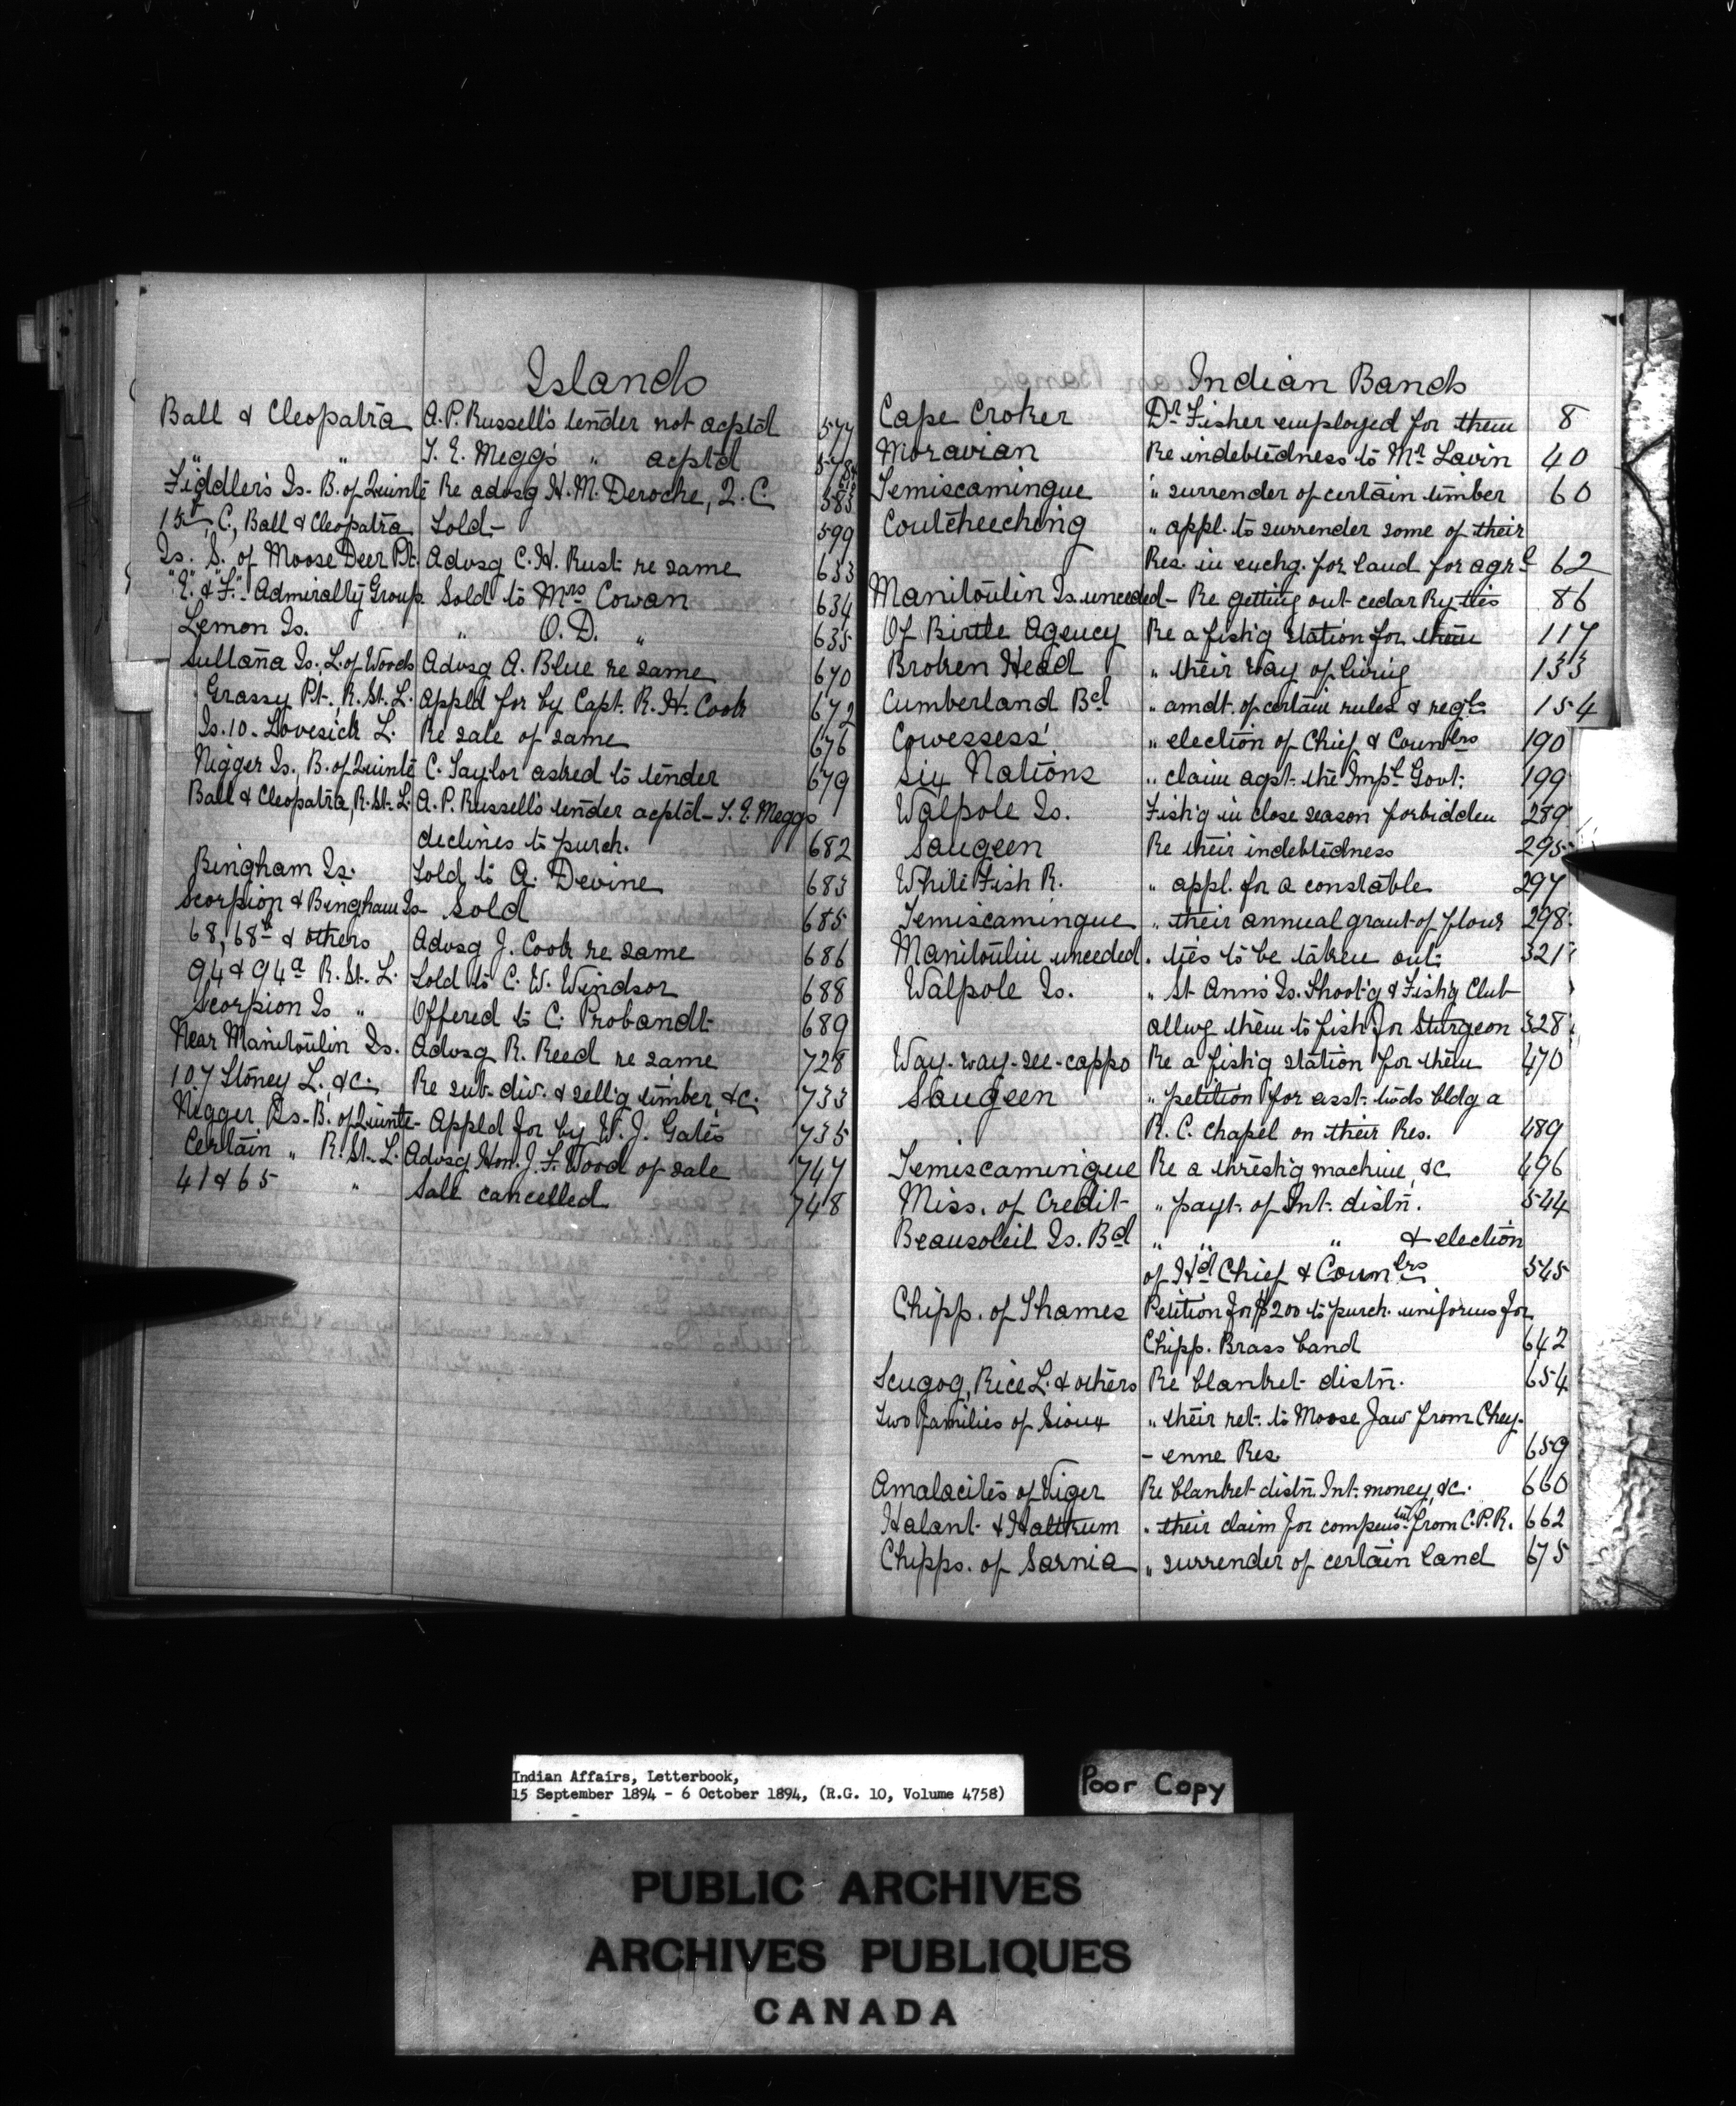 Islands
Ball & Cleopatra A. P. Russell's tender not acptd 577
" " T. E. Meggs " acptd 578
Fiddler's Is. B. of Quinte Re advsg H. M. Deroche, Q. C. 583
C, Ball & Cleopatra Sold - 599
Is. S. of Moose Deer Pt. Advsg C. H. Rust re same 633
"E" & "F" Admiralty Group Sold to Mrs Cowan 634
Lemon Is. " O. D. " 635
Sultana Is. L. of Woods Advsg A. Blue re same 670
Grassy Pt. R. St. L. Appld for by Capt. R. H. Cook 672
Is. 10 - Lovesick L. Re sale of same 676
Nigger Is., B. of Quinte C. Taylor asked to tender 679
Ball & Cleopatra, R. St. L. A. P. Russell's tender acptd - T. E. Meggs
declines to purch. 682
Bingham Is. Sold to A. Devine 683
Scorpion & Bingham Is - Sold 685
68, 68a & others Advsg J. Cook re same 686
94 & 94a R. St. L. Sold to C. W. Windsor 688
Scorpion Is " Offered to C. Probandt 689
Near Manitoulin Is. Advsg R. Reed re same 728
107 Stoney L. &c. Re sub-div. & sell'g timber, &c. 733
Nigger Is - B. of Quinte - Appld for by W. J. Gates 735
Certain " R. St. L. Advsg Hon. J. F. Wood of sale 747
41 & 65 " Sale cancelled 748
Indian Bands
Cape Croker Dr. Fisher employed for them 8
Moravian Re indebtedness to Mr. Lavin 40
Temiscamingue " surrender of certain timber 60
Coutcheeching " appl. to surrender some of their
Res. in exchg. for land for agrl 62
Manitoulin Is. unceeded - Re getting out cedar Ry. ties 86
Of Birtle Agency Re a fish'g station for them 117
Broken Head " their way of living 133
Cumberland Bd " amdt. of certain rules & regls 154
Cowessess' " election of Chief & Counclrs 190
Six Nations " claim agst. the Impl. Govt. 199
Walpole Is. Fish'g in close season forbidden 289
Saugeen Re their indebtedness 295
White Fish R. " appl. for a constable 297
Temiscamingue " their annual grant of flour 298
Manitoulin unceeded " ties to be taken out 321
Walpole Is. " St Ann's Is. Shoot'g & Fish'g Club
allwg them to fish for Sturgeon 328
Way-way-see-cappo Re a fish'g station for them 470
Saugeen " petition for asst. tods bldg a
R. C. chapel on their Res. 489
Temiscamingue Re a thresh'g machine, &c 496
Miss. of Credit " payt. of Int. distn. 544
Beausoleil Is. Bd " " " & election
of Hd Chief & Counclrs 545
Chipp. of Thames Petition for $200 to purch. uniforms for
Chipp. Brass band 642
Scugog, Rice L. & others Re blanket distn. 654
Two families of Sioux " their ret. to Moose Jaw from Chey-
- enne Res. 659
Amalacites of Viger Re blanket distn. Int. money, &c. 660
Halant & Haltkum " their claim for compenstn from C.P.R. 662
Chipps. of Sarnia " surrender of certain land 675
Indian Affairs, Letterbook,
15 September 1894 - 6 October 1894, (R.G. 10, Volume 4758)
Poor Copy
PUBLIC ARCHIVES
ARCHIVES PUBLIQUES
CANADA